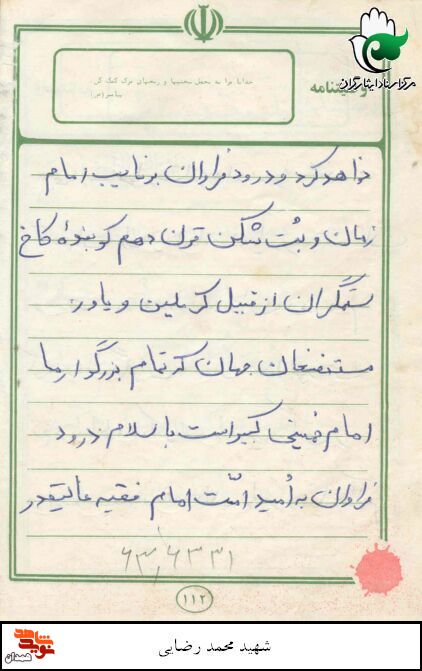 خدایا مرا به تحمل سختیها و رنجهای مرگ کمک کن
پیامبر (ص)
وصیتنامه
مرکز اسناد ایثارگران
خواهد کرد و درود فراوان بر نایب امام
زمان و بُت شکن قرن دهم کوبندهٔ کاخ
ستمگران از قبیل کرملین و یاور
مستضعفان جهان که تمام بزرگوار ما
امام خمینی کبیر است با سلام درود
فراوان به اُمید امّت امام فقیه عالیقدر
۶۳,۶۳۳۱
۱۱۲
شاهد
نوید
همدان
شهید محمد رضایی